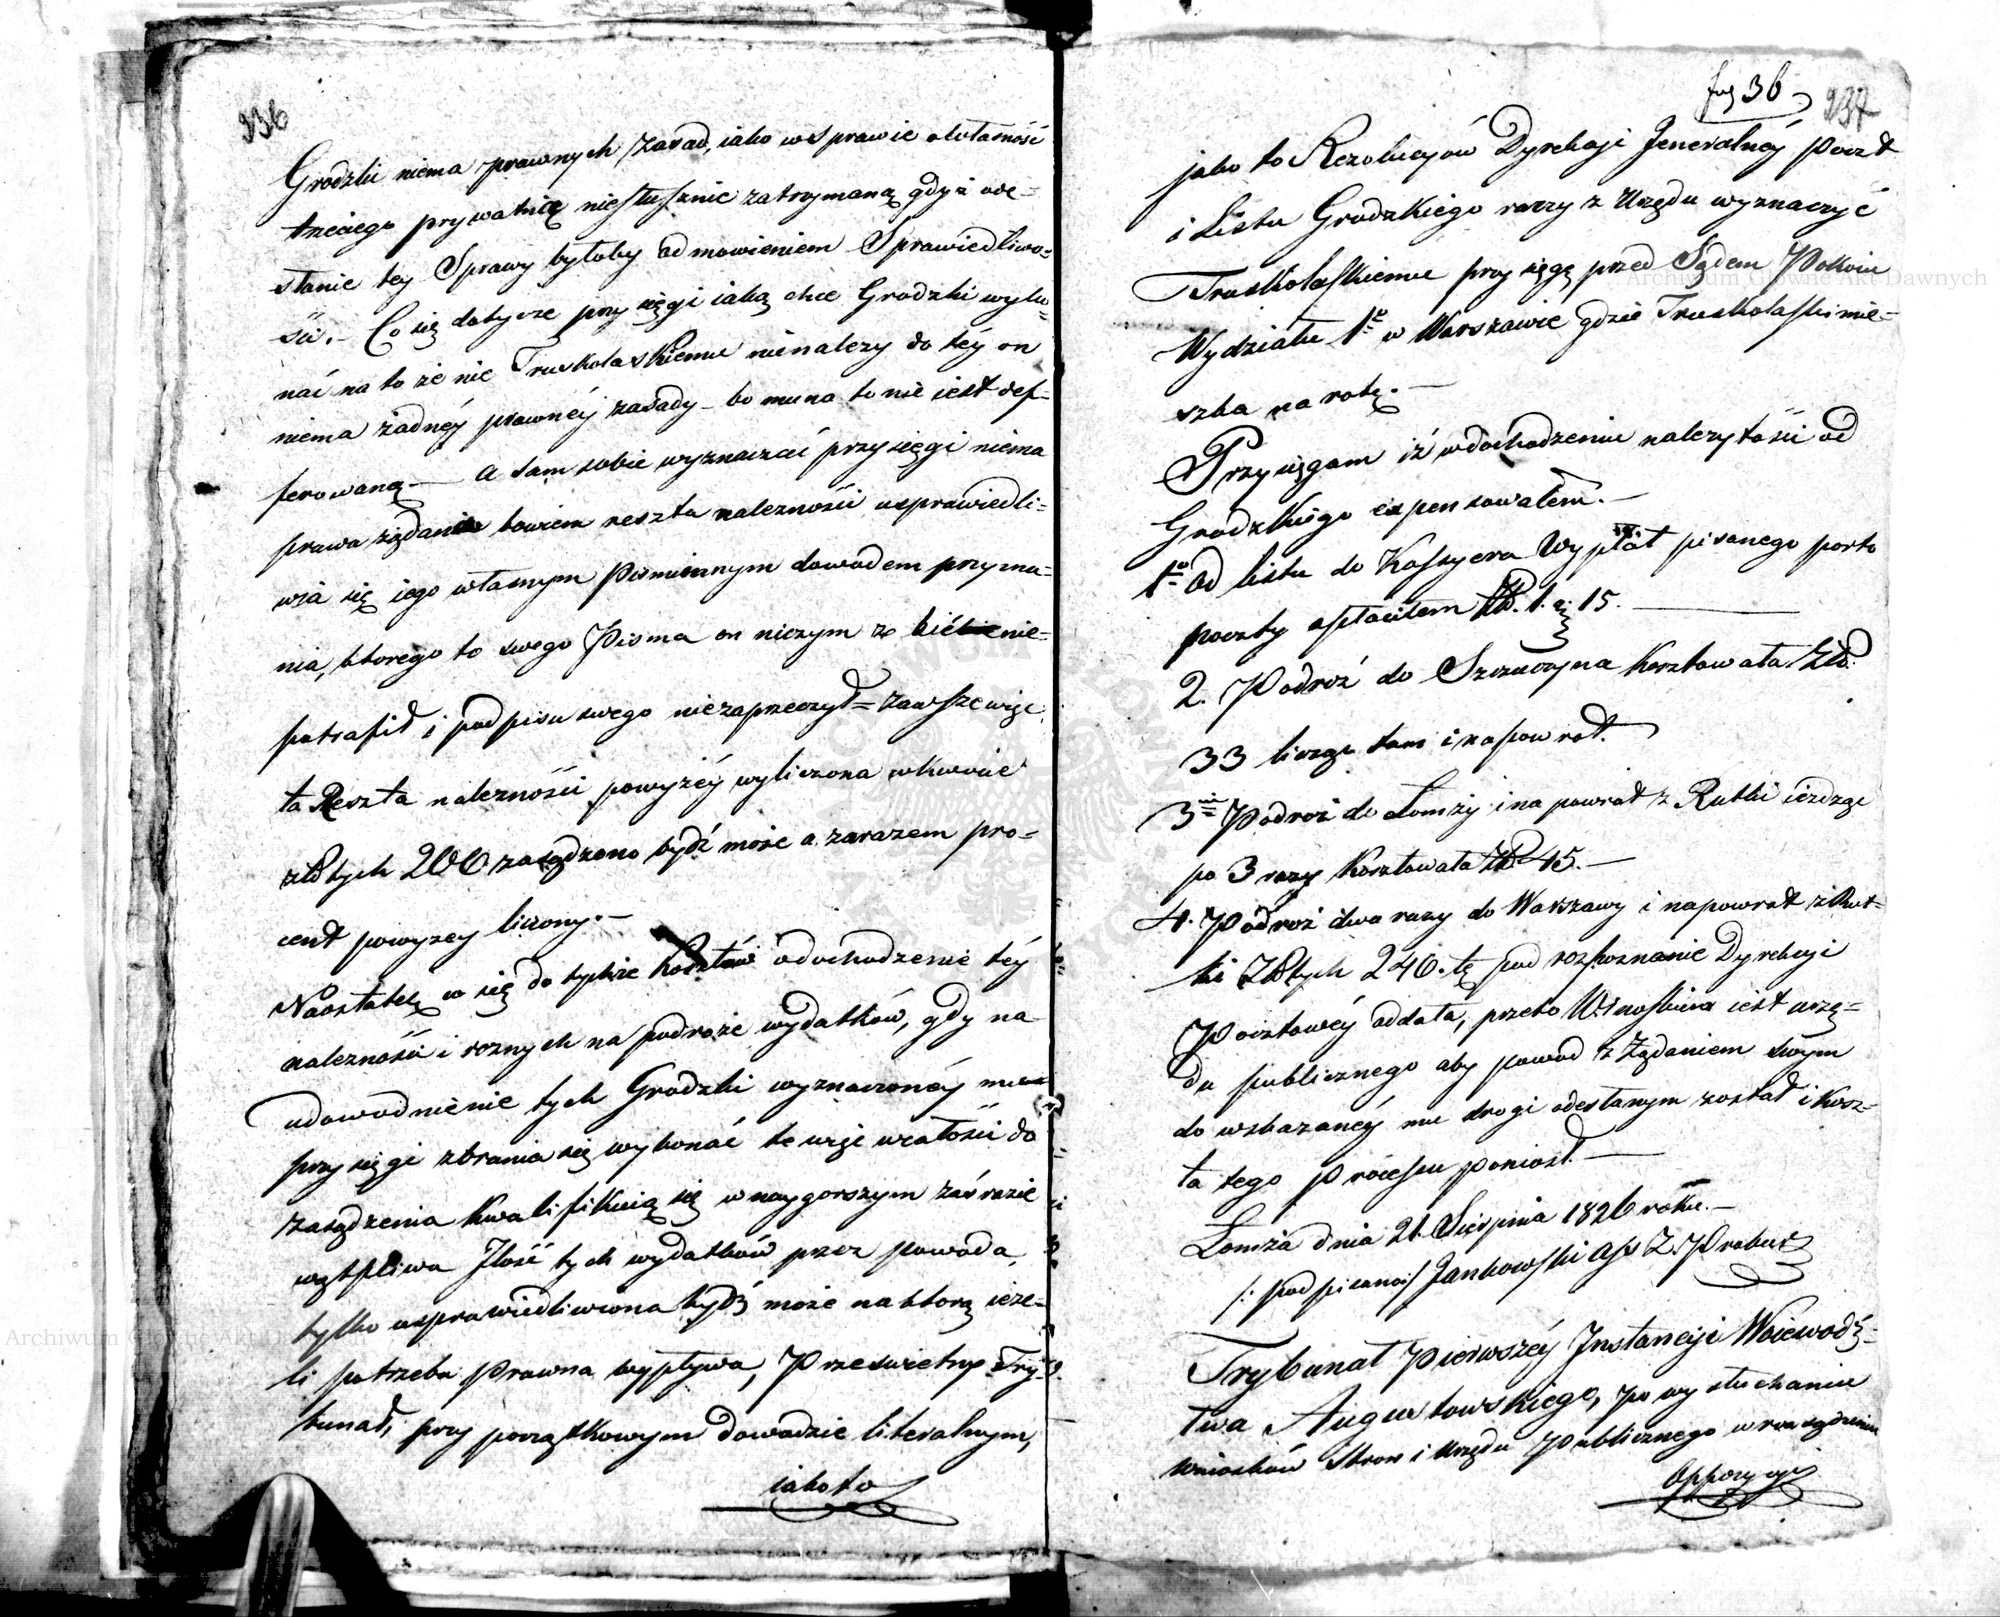 236
Grodzki niema prawnych zasad, iako w sprawie o własność
trzeciego prywatnie niesłusznie zatrzymaną gdyż ode-
słanie tey Sprawy byłoby odmowieniem Sprawiedliwo-
ści. – Co się dotycze przysięgi iaką chce Grodzki wyko-
nać na to że nic Truskolaskiemu nienależy do téy on
niema żadnéy prawnéy zasady – bo mu na to nie iest def-
ferowaną – a sam sobie wyznaczać przysięgi niema
prawa żądania bowiem reszta należności usprawiedli-
wia się iego własnym pismiennym dowodem przyzna-
nia, ktorego to swego Pisma on niczym zbić nie-
potrafił i podpisu swego niezaprzeczył = zawsze więc
ta Reszta należności powyżéy wyliczona w kwocie
złotych 200 zasądzono bydź może a zarazem pro-
cent powyżey liczony. –
Naostatek co się do tycze Kosztów o dochodzenie téy
należności i roznych na podroże wydatków, gdy na
udowodnienie tych Grodzki wyznaczonéy mu
przysięgi zbrania się wykonać te więc w całości do
zasądzenia kwalifikuią się w naygorszym zaś razie
wątpliwa Ilość tych wydatków przez powoda
tylko usprawiedliwiona bydź może na ktorą ieże-
li potrzeba Prawna wypływa, Prześwietny Try-
bunał, przy początkowym dowodzie literalnym,
iako to
36
237
jako to Rezolucyów Dyrekcyi Jeneralnéy Poczt
i Listu Grodzkiego raczy z Urzędu wyznaczyć
Truskolaskiemu przysięgę przed Sądem Pokoiu
Wydziału 1º w Warszawie gdzie Truskolaski mie-
szka na rotę. –
Przysięgam iż w dochodzeniu należytości od
Grodzkiego expensowałem. –
1º od listu do Kassyera Wypłat pisanego porto
poczty opłaciłem Zł. 1. gr 15. –
2. Podroż do Szczuczyna kosztowała Zło.
33 licząc tam i napowrot.
3º Podroż do Łomży i na powrot z Rutki ieżdżąc
po 3 razy kosztowała Zł 45. –
4. Podroż dwa razy do Warszawy i napowrot z Rut-
ki Złotych 240. tę pod rozpoznanie Dyrekcyi
Pocztowéy oddała, przeto Wnoskiem iest urzę-
du publicznego aby powod z Żądaniem swym
do wskazanéy mu drogi odesłanym został i kosz-
ta tego Processu poniosł. –
Łomża dnia 21. Sierpnia 1826 roku. –
/: podpisano:/ Jankowski Z. Prokur
Trybunał Pierwszéy Instancyi Woiewodz-
twa Augustowskiego, po wysłuchaniu
wniosków Stron i Urzędu Publicznego w rozsądzeniu
Oppozycyi
Archiwum Główne Akt Dawnych
Archiwum Główne Akt Dawnych